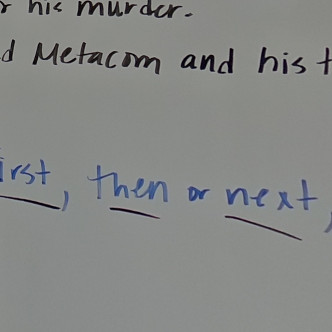 his murder.
Metacom and his
then or next,